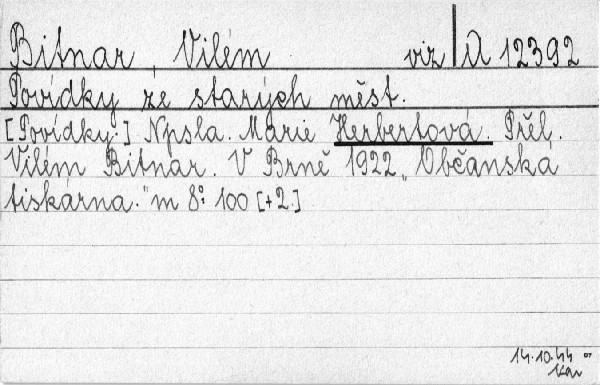 Bitnar, Vilém viz A 12392
Povídky ze starých měst.
[Povídky.] Npsla. Marie Herbertová. Přel.
Vilém Bitnar. V Brně 1922 „Občanská
tiskárna." m 8° 100 [+2.]
14.10.44